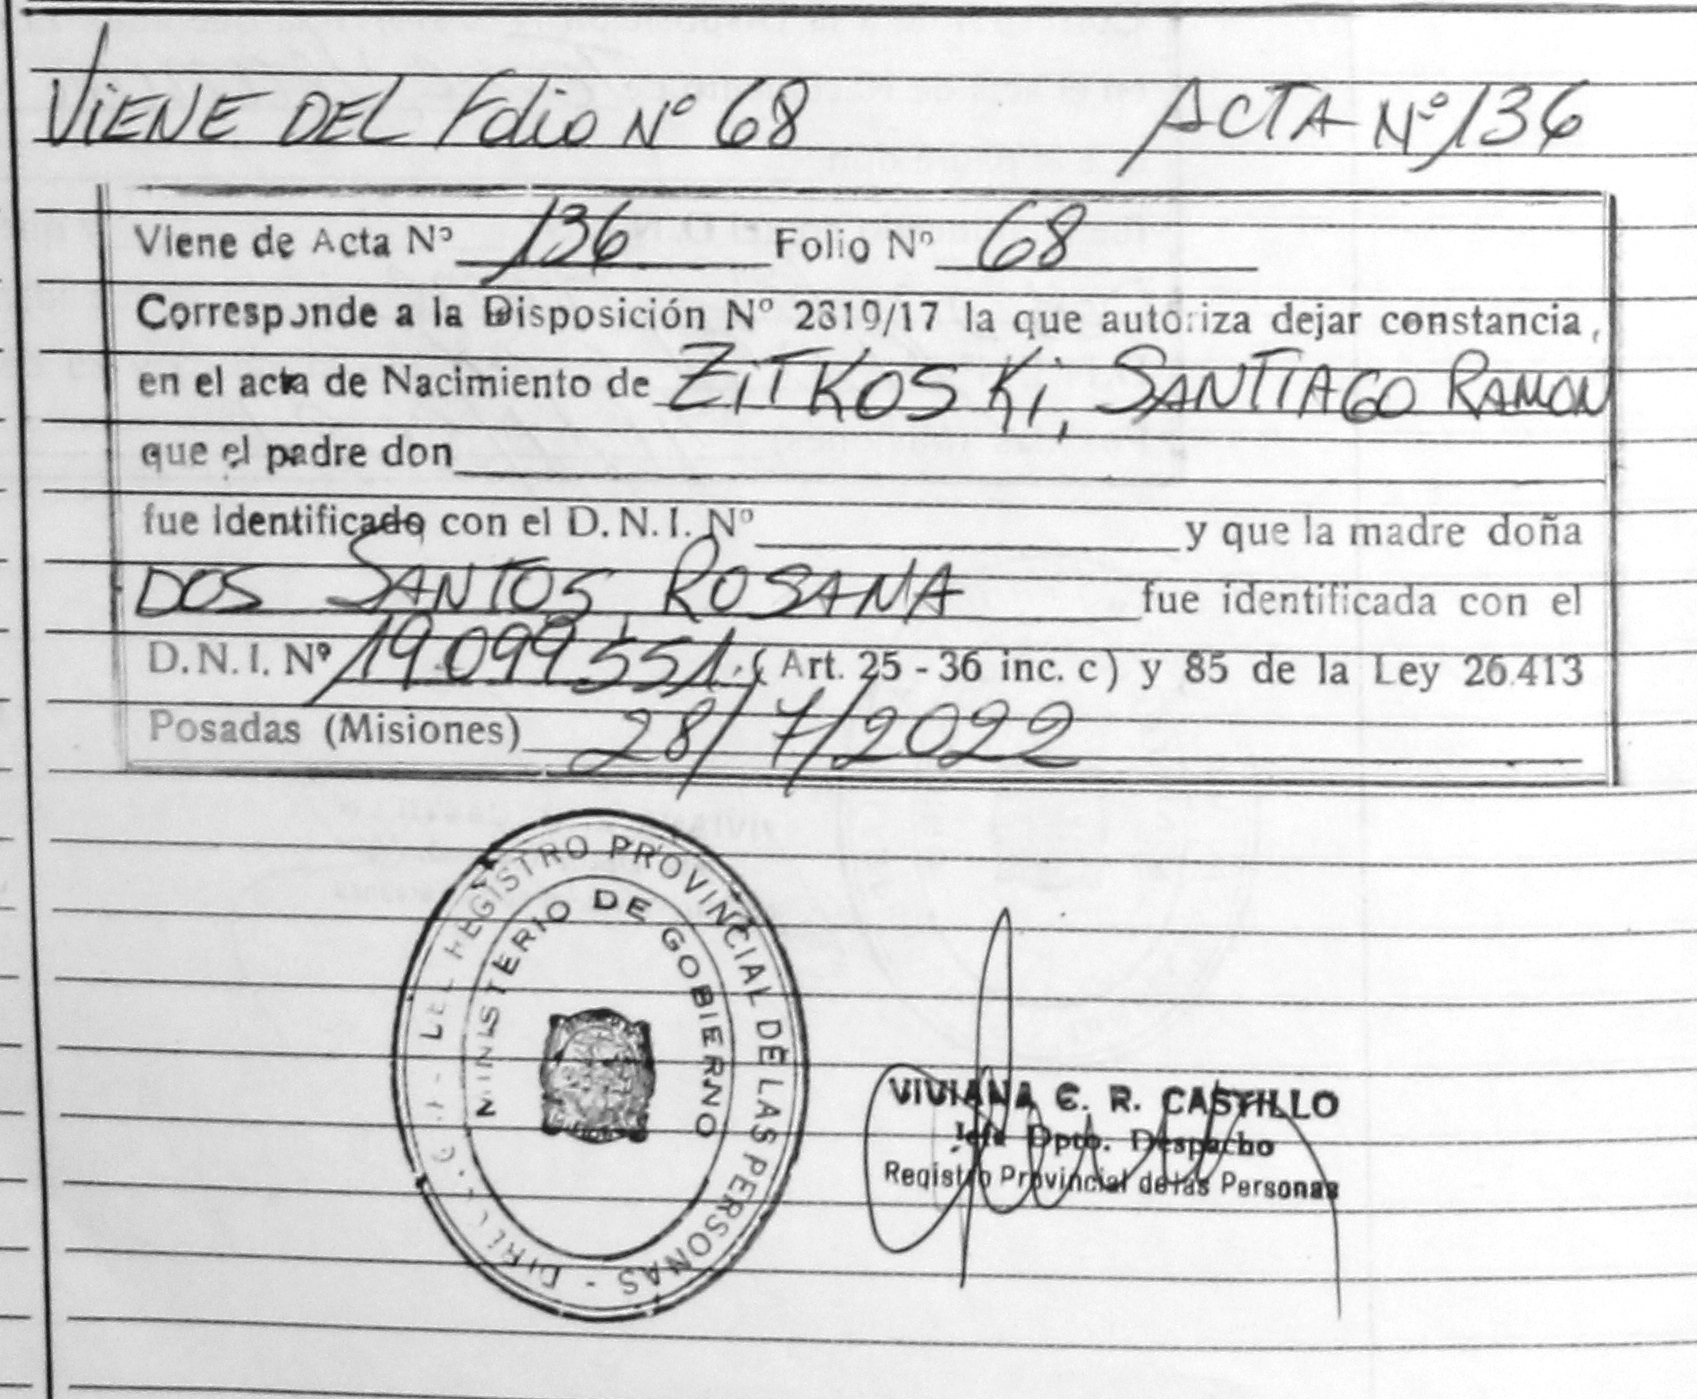 VIENE DEL Folio Nº 68 ACTA Nº 136
Viene de Acta Nº 136 Folio Nº 68
Corresponde a la Disposición Nº 2819/17 la que autoriza dejar constancia,
en el acta de Nacimiento de ZITKOSKI, SANTIAGO RAMON
que el padre don
fue identificado con el D.N.I. Nº y que la madre doña
DOS SANTOS, ROSANA fue identificada con el
D.N.I. Nº 19.099.551.( Art. 25 - 36 inc. c) y 85 de la Ley 26.413
Posadas (Misiones) 28/7/2022
REGISTRO PROVINCIAL DE LAS PERSONAS -
MINISTERIO DE GOBIERNO
VIVIANA E. R. CASTILLO
Jefa Dpto. Despacho
Registro Provincial de las Personas